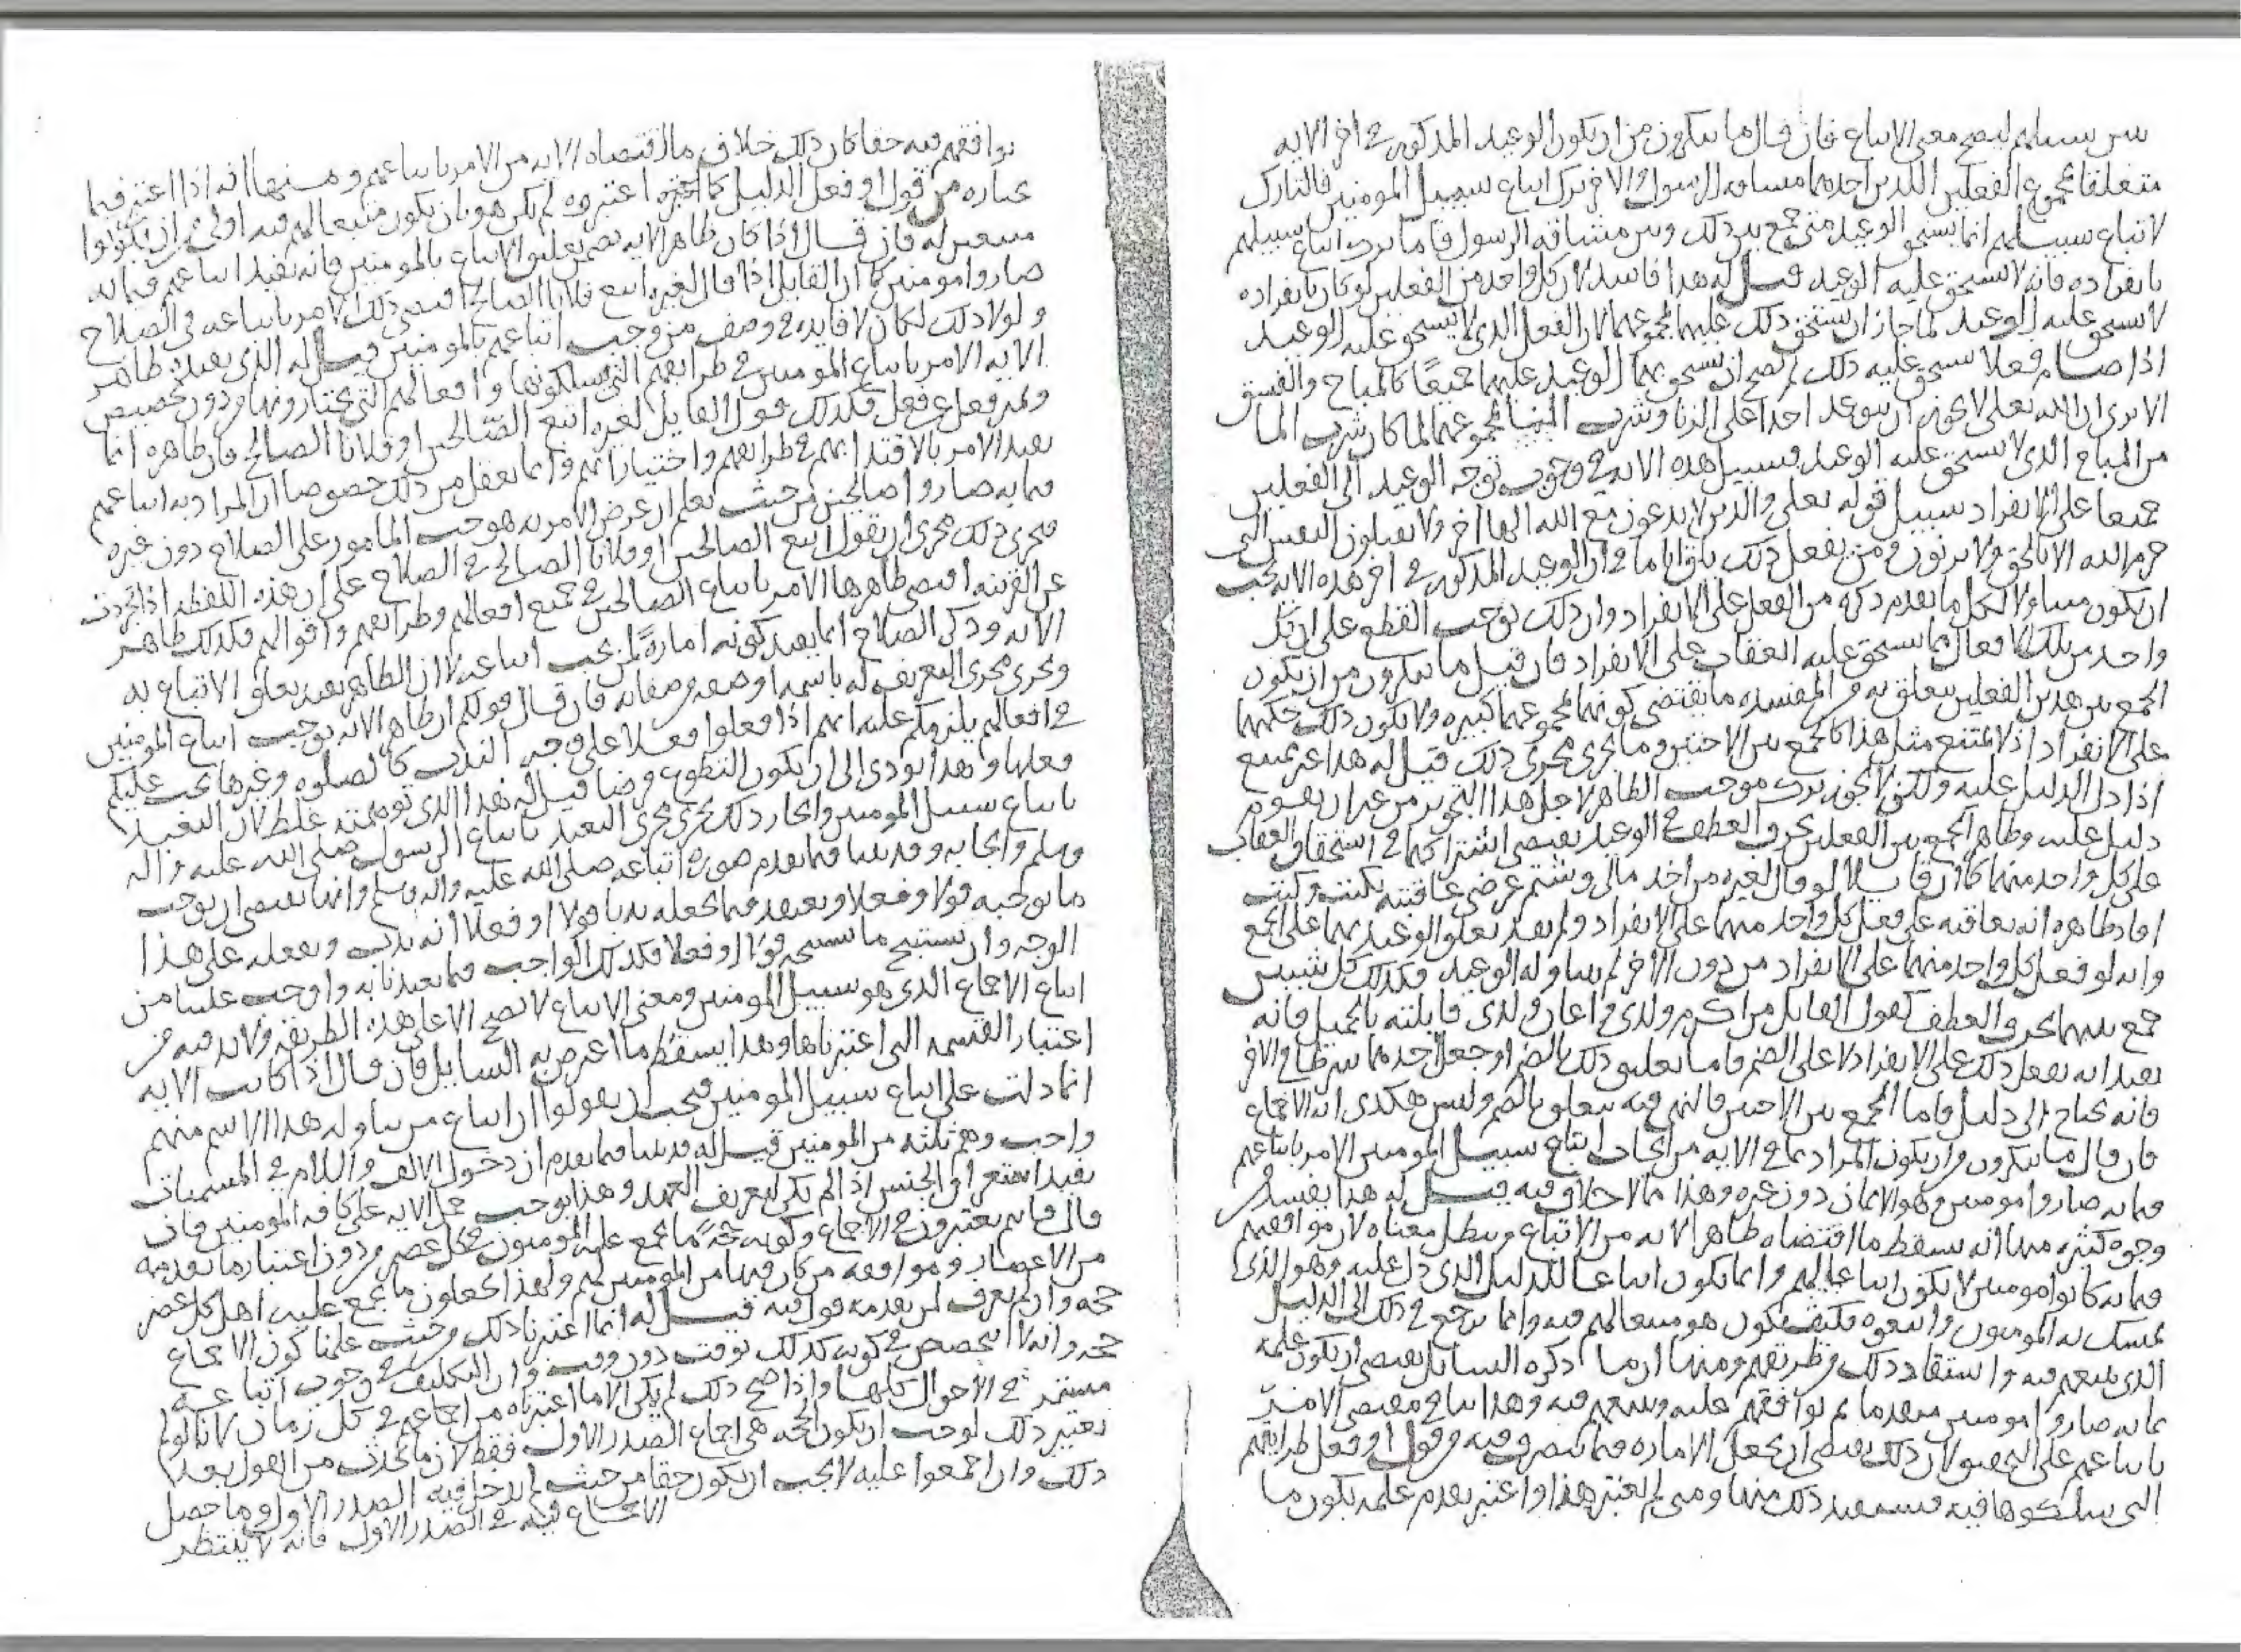 سن سبيلهم ليصح معنى الاتباع فان قال ما تنكرون من ان يكون الوعيد المذكور في اخر الايه
متعلقا بمجموع الفعلين اللذين احدهما مشاقه الرسول والاخر ترك اتباع سبيل المومنين فالتارك
لاتباع سبيلهم انما يستحق الوعيد متى جمع بين ذلك وبين مشاقه الرسول فاما ترك اتباع سبيلهم
بانفراده فانه لا يستحق عليه الوعيد قيل له هذا فاسد لان كل واحد من الفعلين لو كان بانفراده
لا يستحق عليه الوعيد لما جاز ان يستحق ذلك عليهما بمجموعهما لان الفعل الذي لا يستحق عليه الوعيد
اذا ضام فعلا يستحق عليه ذلك لم يصح ان يستحق بهما الوعيد عليهما جميعا كالمباح والفسق
الا ترى ان الله تعلى لا يجوز ان يتوعد احدا على الزنا وشرب الماء بمجموعهما لما كان شرب الما
من المباح الذي لا يستحق عليه الوعيد فسبيل هذه الايه في وجوب توجه الوعيد الى الفعلين
جميعا على الانفراد سبيل قوله تعلى والذين لا يدعون مع الله الها اخر ولا يقتلون النفس التي
حرم الله الا بالحق ولا يزنون ومن يفعل ذلك يلق اثاما في ان الوعيد المذكور في اخر هذه الايه يجب
ان يكون متناولا لكل ما تقدم ذكره من الفعل على الانفراد وان ذلك يوجب القطع على ان كل
واحد من تلك الافعال مما يستحق عليه العقاب على الانفراد فان قيل ما تنكرون من ان يكون
الجمع بين هذين الفعلين يتعلق به من المفسده ما يقتضي كونهما بمجموعهما كبيره ولا يكون ذلك حكمهما
على الانفراد اذ لا يمتنع مثل هذا كالجمع بين الاختين وما يجري مجرى ذلك قيل له هذا غير ممتنع
اذا دل الدليل عليه ولكن لا يجوز ترك موجب الظاهر لاجل هذا التجويز من غير ان يقوم
دليل عليه وظاهر الجمع بين الفعلين بحرف العطف في الوعيد يقتضي اشتراكهما في استحقاق العقاب
على كل واحد منهما كما ان قايلا لو قال لغيره من اخذ مالي وشتم عرضي عاقبته بكيت وكيت
افاد ظاهره انه يعاقبه على فعل كل واحد منهما على الانفراد ولم يفد تعلق الوعيد بهما على الجمع
وانه لو فعل كل واحد منهما على الانفراد من دون الاخر لم يتناوله الوعيد فكذلك كل شيئين
جمع بينهما بحرف العطف كقول القايل من اكرم ولدي واعان ولدي قابلته بالجميل فانه
يفيد انه يفعل ذلك على الانفراد لا على الضم فاما تعليق ذلك بالضم او جعل احدهما شرطا في الاخر
فانه يحتاج الى دليل فاما الجمع بين الاختين فالنهي فيه يتعلق بالضم وليس هكذى ايه الاجماع
فان قال ما تنكرون من ان يكون المراد بما في الايه من ايجاب اتباع سبيل المومنين الامر باتباعهم
فيما به صاروا مومنين وهو الايمان دون غيره وهذا مما لا خلاف فيه قيل له هذا يفسد من
وجوه كثيره منها انه يسقط ما اقتضاه ظاهر الايه من الاتباع ويبطل معناه لان موافقتهم
فيما به كانوا مومنين لا يكون اتباعا لهم وانما يكون اتباعا للدليل الذي دل عليه وهو الذي
تمسك به المومنون واتبعوه فكيف يكون هو متبعا لهم فيه وانما يرجع في ذلك الى الدليل
الذي يتبعهم فيه واستفاد ذلك من طريقهم ومنها ان ما ذكره السايل يقتضي ان يكون علمه
بما به صاروا مومنين متقدما ثم يوافقهم عليه ويتبعهم فيه وهذا ينافي مقتضى الامر
باتباعهم على التحقيق لان ذلك يقتضي ان يجعل الاماره فيما يتصرف فيه من قول او فعل طرايقهم
التي سلكوها فيه فيستفيد ذلك منها ومتى لم يعتبر هذا واعتبر تقدم علمه بكون ما
يوافقهم فيه حقا كان ذلك خلاف ما اقتضاه الايه من الامر باتباعهم ومنها انه اذا اعتبر فيما
عباره من قول او فعل الدليل كما اعتبروه لم يكن هو بان يكون متبعا لهم فيه اولى من ان يكونوا
متبعين له فان قال اذا كان ظاهر الايه تضمن تعليق الاتباع بالمومنين فانه يفيد اتباعهم فيما به
صاروا مومنين كما ان القايل اذا قال لغيره اتبع فلانا الصالح اقتضى ذلك الامر باتباعه في الصلاح
ولولا ذلك لكان لا فايده في وصف من وجب اتباعهم بالمومنين قيل له الذي يفيده ظاهر
الايه الامر باتباع المومنين في طرايقهم التي يسلكونها وافعالهم التي يختارونها من دون تخصيص
وتمييز فعل من فعل فكذلك قول القايل لغيره اتبع الصالحين او فلانا الصالح فان ظاهره انما
يفيد الامر بالاقتدا بهم في طرايقهم واختياراتهم وانما يعقل من ذلك خصوصا ان المراد به اتباعهم
فيما به صاروا صالحين من حيث نعلم ان غرض الامر به هو حث المامور على الصلاح دون غيره
فجرى ذلك مجرى ان يقول اتبع الصالحين او فلانا الصالح في الصلاح على ان هذه اللفظه اذا تجردت
عن القرينه اقتضى ظاهرها الامر باتباع الصالحين في جميع افعالهم وطرايقهم واقوالهم فكذلك ظاهر
الايه وذكر الصلاح انما يفيد كونه امارة لمن يجب اتباعه لا ان الظاهر يفيد تعلق الاتباع به
ويجري مجرى التعريف له باسمه او صفه من صفاته فان قال قولكم ان ظاهر الايه يوجب اتباع المومنين
في افعالهم يلزمكم عليه انهم اذا فعلوا فعلا على وجه الندب كالصلوه وغيرها يجب عليكم
فعلها وهذا يودي الى ان يكون التطوع فرضا قيل له هذا الذي توهمته غلط لان التعبد
باتباع سبيل المومنين وايجاب ذلك يجري مجرى التعبد باتباع الرسول صلى الله عليه واله
وسلم وايجابه وقد بينا فيما تقدم صوره اتباعه صلى الله عليه واله وسلم وانها تقتضي ان نوجب
ما يوجبه قولا وفعلا ونعتقد فيما يجعله ندبا قولا او فعلا انه ندب ونفعله على هذا
الوجه وان نستبيح ما يستبيحه قولا او فعلا فكذلك الواجب فيما تعبدنا به واوجب علينا من
اتباع الاجماع الذي هو سبيل المومنين ومعنى الاتباع لا يصح الا على هذه الطريقه ولا بد فيه من
اعتبار القسمه التي اعتبرناها وهذا يسقط ما اعترض به السايل فان قال اذا كانت الايه
انما دلت على اتباع سبيل المومنين فيجب ان يقولوا ان اتباع من يتناوله هذا الاسم منهم
واجب وهم ثلثه من المومنين قيل له قد بينا فيما تقدم ان دخول الالف واللام في المسميات
يفيد استغراق الجنس اذا لم يكن لتعريف العهد وهذا يوجب حمل الايه على كافه المومنين فان
قال فانتم تعتبرون في الاجماع وكونه حجة ما يجمع عليه المومنون في كل عصر من دون اعتبار ما تقدمه
من الاعصار وموافقه من كان فيها من المومنين لهم ولهذا يجعلون ما يجمع عليه اهل كل عصر
حجه وان لم يعرف لمن تقدمه قول فيه قيل له انما اعتبرنا ذلك من حيث علمنا كون الاجماع
حجه وانه لا تخصص في كونه كذلك بوقت دون وقت وان التكليف في وجوب اتباعه
مستمر في الاحوال كلها واذا صح ذلك لم يكن الا ما اعتبرناه من اجماعهم في كل زمان لانا لو لم
نعتبر ذلك لوجب ان يكون الحجه هي اجماع الصدر الاول فقط لان ما يحدث من القول بعد
ذلك وان اجمعوا عليه لا يجب ان يكون حقا من حيث لم يدخل فيه الصدر الاول وما حصل
الاجماع فيه في الصدر الاول فانه لا ينتظر